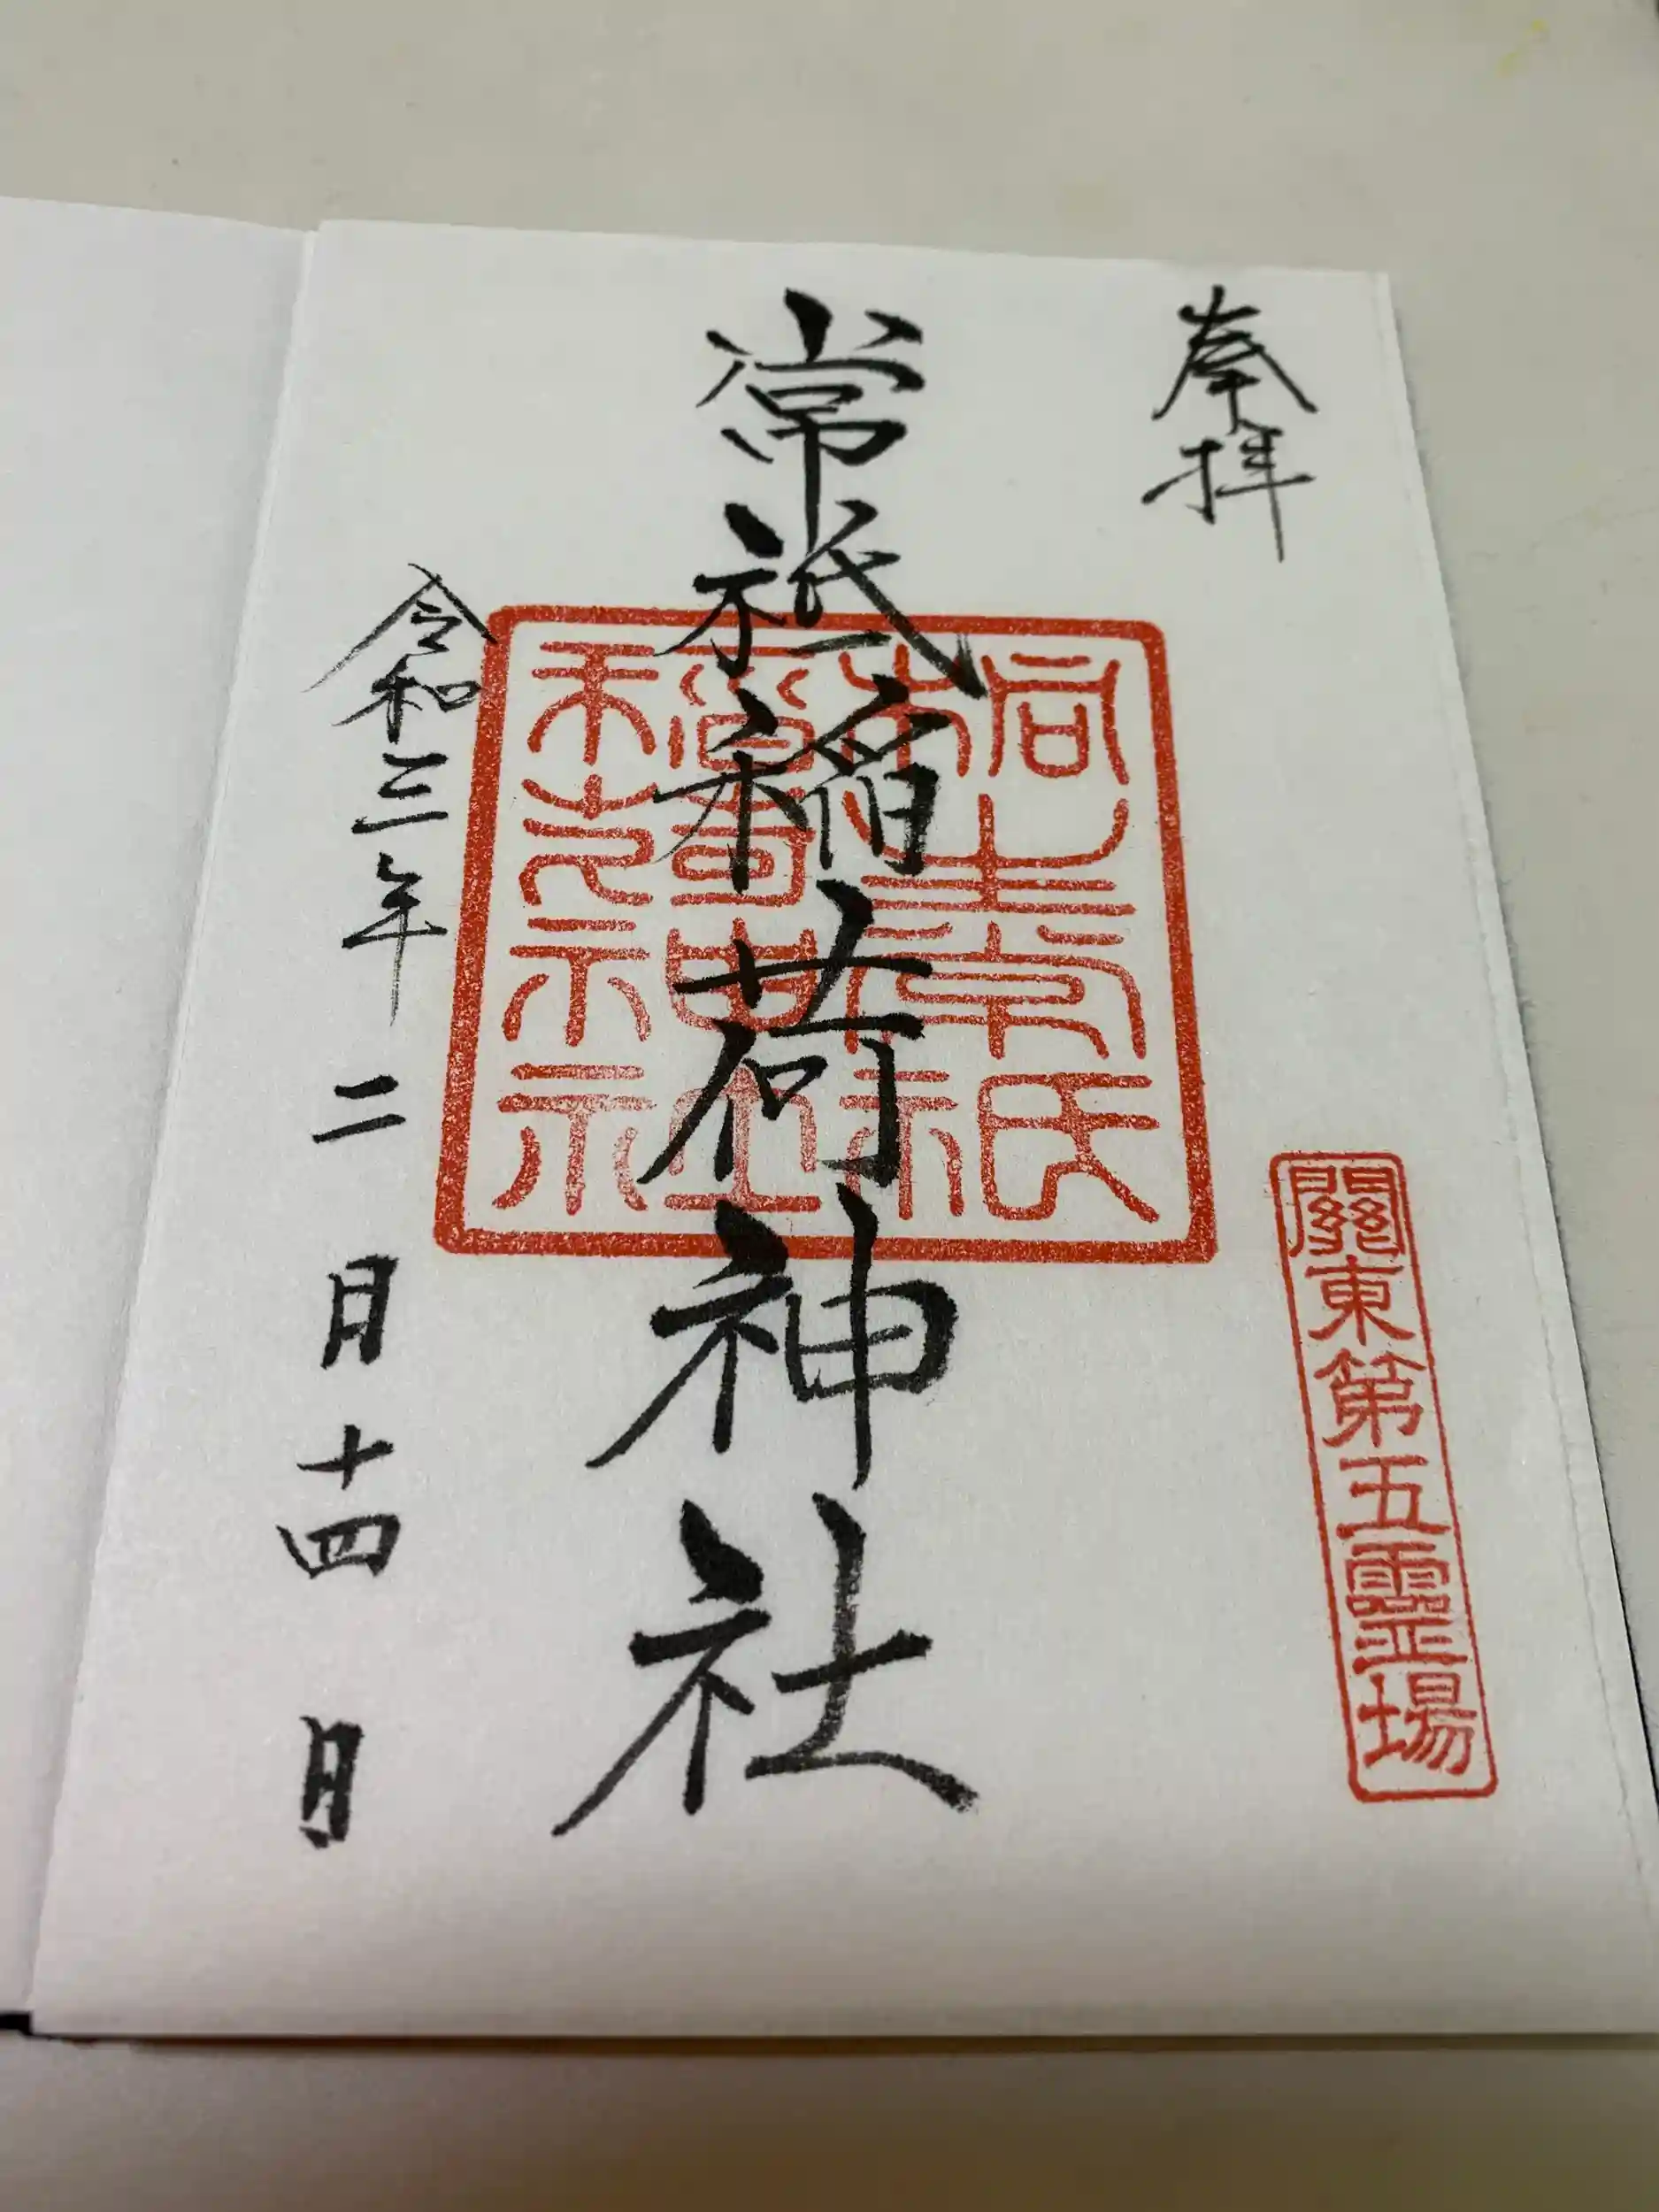 奉拝
關東第五靈場
常祇稲荷神社
令和三年二月十四日